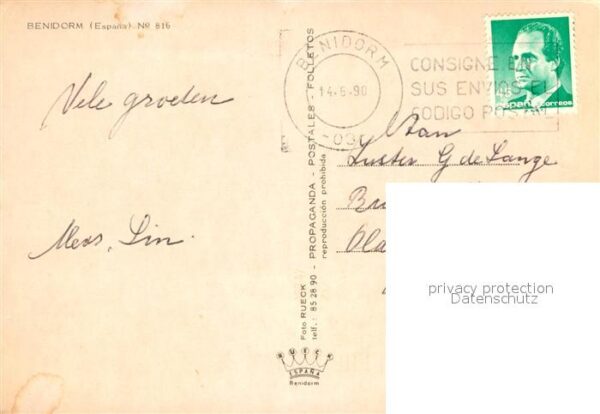 BENIDORM (España) Nº 816
Vele groeten
Mevr. Lin.
Foto RUECK
telf.: 85 28 90 - PROPAGANDA - POSTALES - FOLLETOS
reproducción prohibida
RUECK
ESPAÑA
Benidorm
BENIDORM
14.6.90
CONSIGNE EN
SUS ENVIOS EL
CODIGO POSTAL
España correos
Aan
G de Lange
privacy protection
Datenschutz